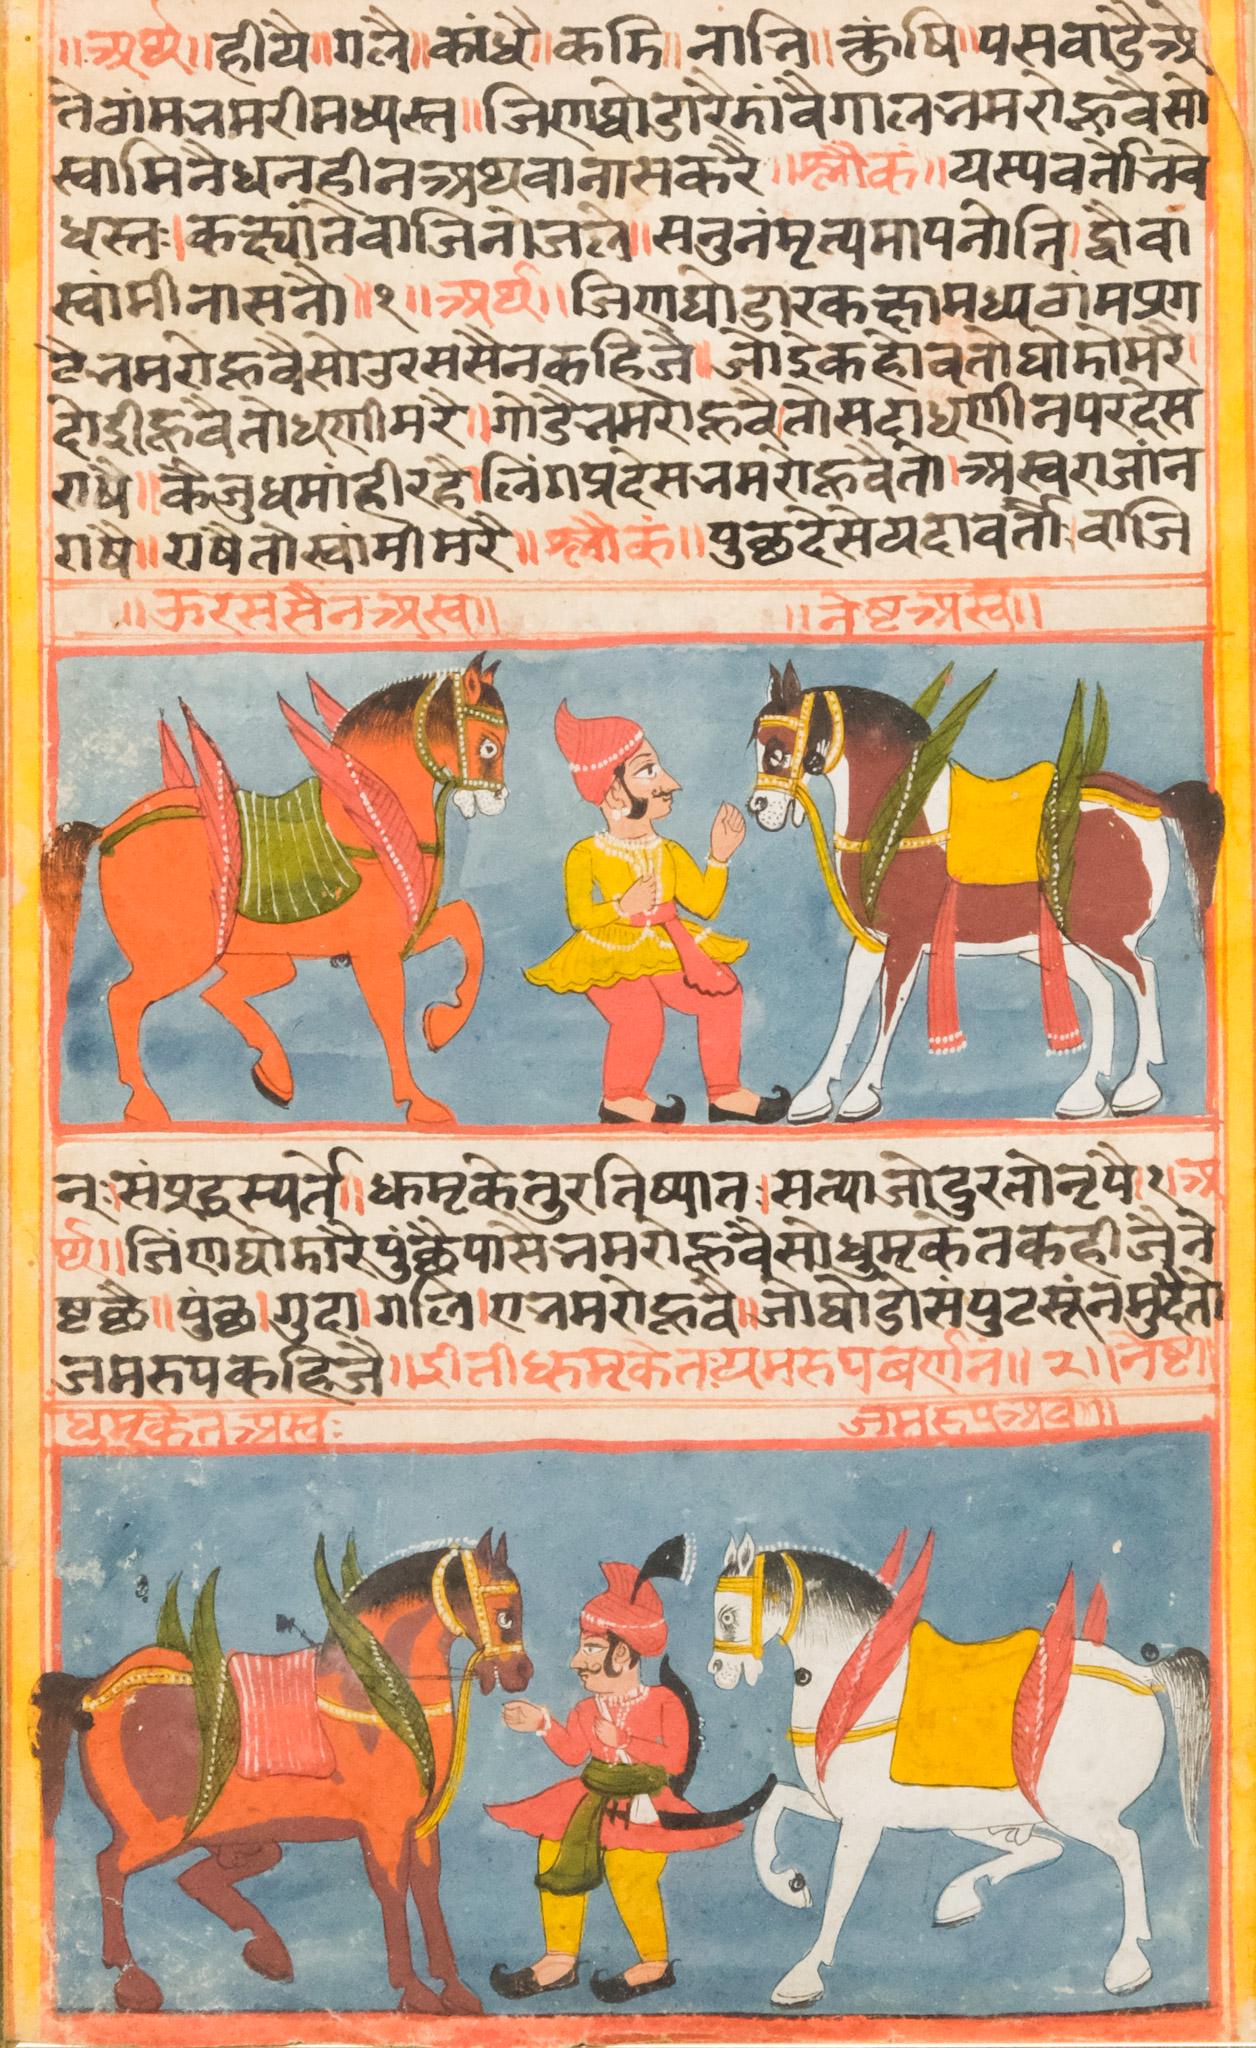 ॥अर्थ॥ हीयै॥ गलै॥ कांधै॥ कमि॥ नानि॥ कुंषि॥ पसवाडै अ
तेवांम नमरी मध्यस्त॥ जिणघोडारै दांवै गाल नमरो ह्नवै सो
स्वामिनै धनहीन अथवा नास करै॥ श्लौकं॥ यस्पवर्तोत्निवे
धस्तः। कक्ष्यांतेवाजिनोजले॥ सनुनंमृत्यमापनोति। द्वौवा
स्वांमीनासनौ॥१॥ अर्थ॥ जिणघोडारकह्नामध्यवांमप्रग
टैनमरोह्नवैसोउरससैनकहिजै॥ जोइकहोवतोघोमोमरै।
दोइह्नवैतोधणीमरै॥ गोडैनमरोह्नवैतोसदाधणीनपरदेस
राषै॥ कैजुधमांहीरहै। लिंगप्रदेसनमरोह्नवैतो। अस्वराजांन
राषै॥ राषैतोस्वांमीमरै॥ श्लौकं॥ पुछदेसेयदावर्तो। वाजि
॥ऊरससैनअस्व॥ ॥नेष्टअस्व॥
नः संप्रद्रस्यर्ते॥ ध्रूमृकेतुरतिष्यातः। सत्याजोदुरतोनृपै१। अ
र्थ॥ जिंणघोमारैपुंछैपासैनमरोह्नवैसोधुमृकेतकहीजैने
ष्टछै॥ पुंछ। गुदा। गलि। एनमरोह्नवै॥ जोघोडोसंपुटसूंनमुदैतो
जमरुपकहिजै॥ ईतीध्रूमृकेतःयमरुपबर्णनं॥२॥ नेष्टा
ध्रूमृकेतअस्वः जमरुपअस्व॥